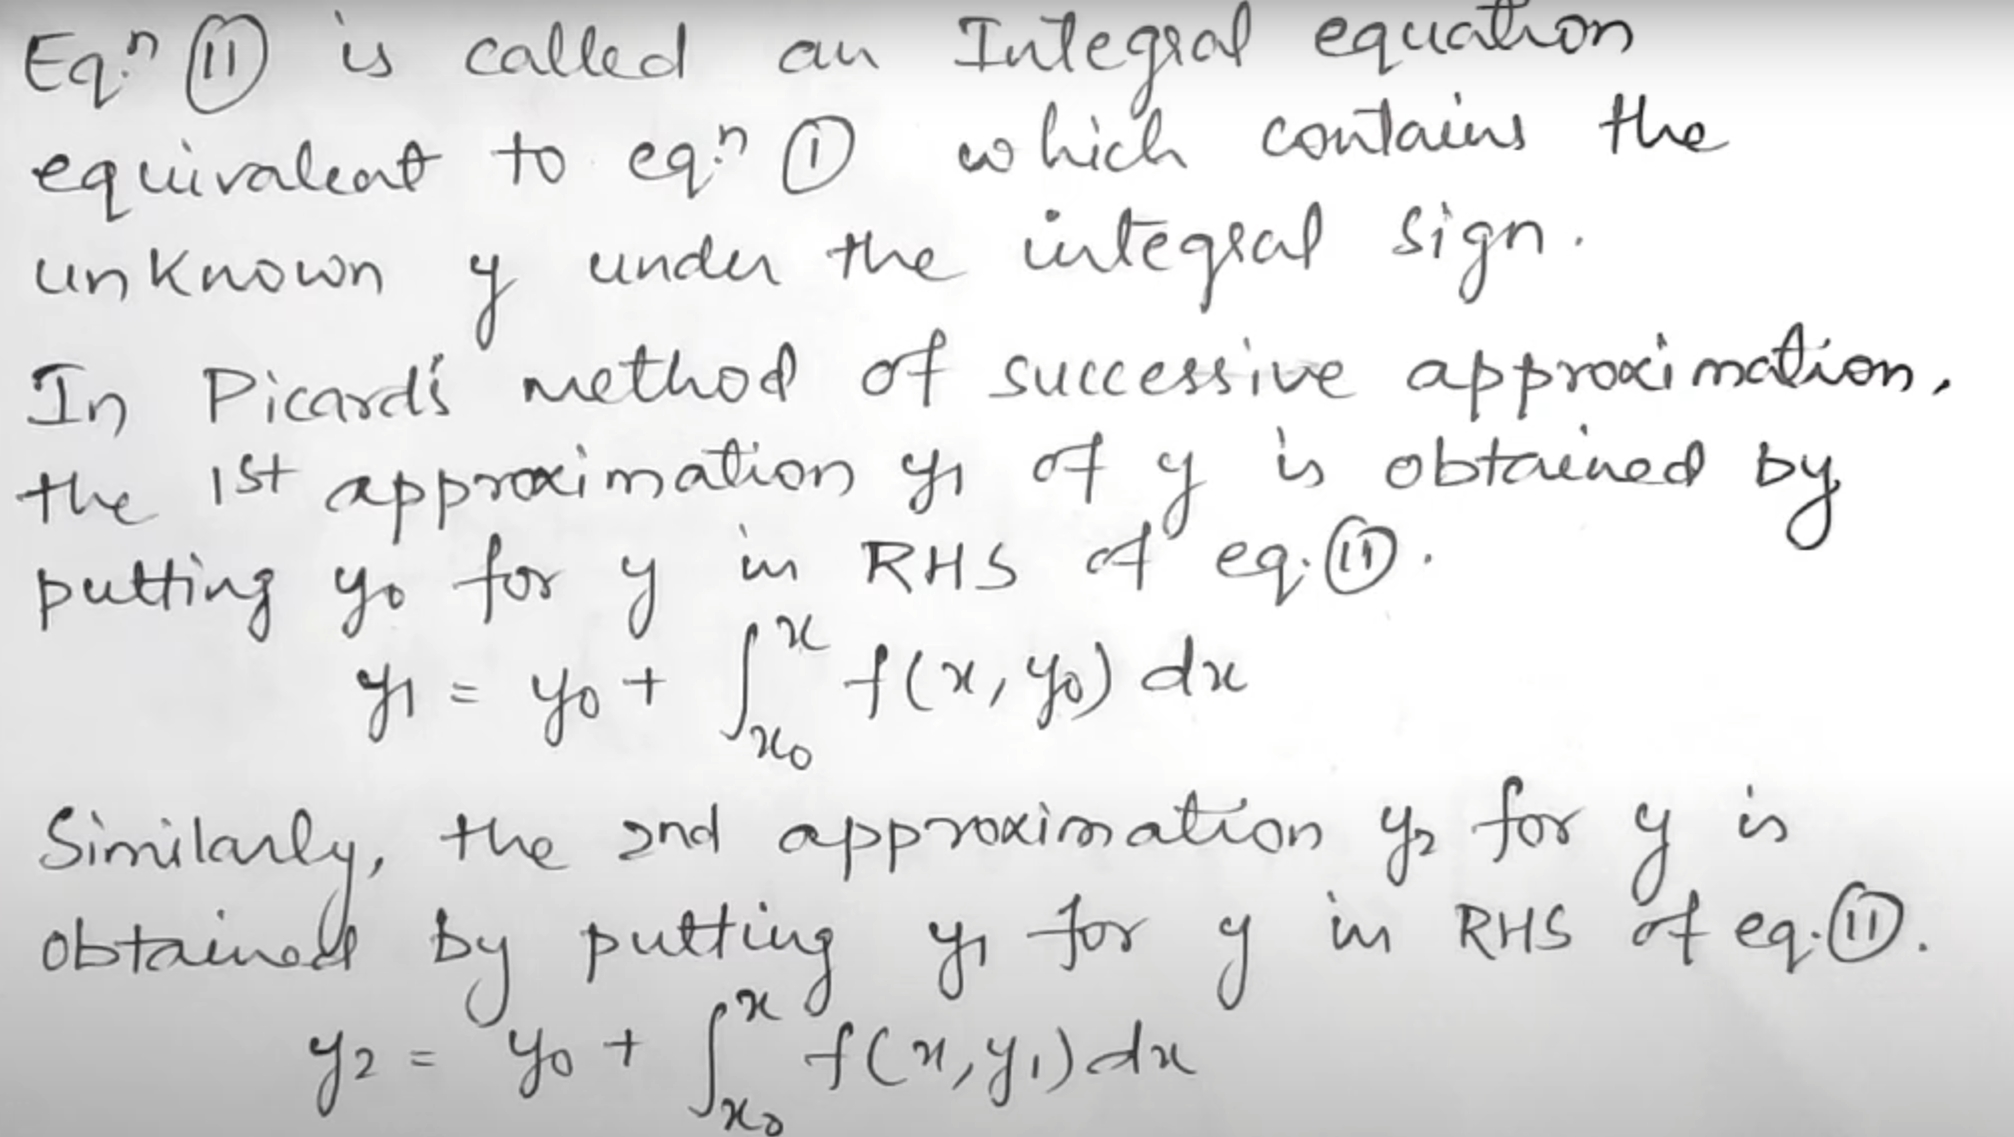 Eq.ⁿ ⑪ is called an Integral equation
equivalent to eq.ⁿ ① which contains the
unknown y under the integral sign.
In Picard's method of successive approximation,
the 1st approximation y₁ of y is obtained by
putting y₀ for y in RHS of eq. ⑪.
y₁ = y₀ + ∫ₓ₀ˣ f(x, y₀) dx
Similarly, the 2nd approximation y₂ for y is
obtained by putting y₁ for y in RHS of eq. ⑪.
y₂ = y₀ + ∫ₓ₀ˣ f(x, y₁) dx